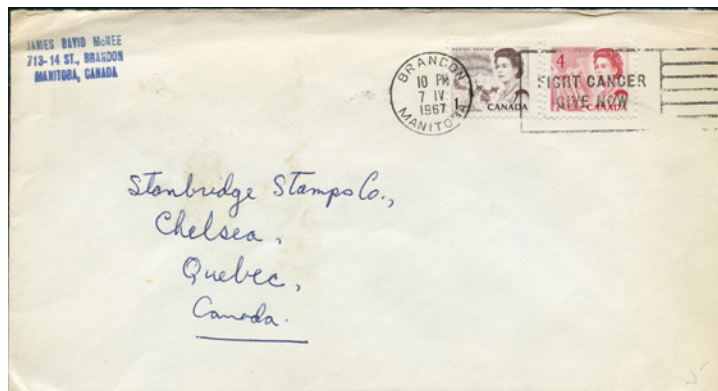 JAMES DAVID McKEE
713-14 ST., BRANDON
MANITOBA, CANADA
BRANDON
10 PM
7 IV
1967
MANITOBA
1
CANADA
4
CANADA
FIGHT CANCER
GIVE NOW
Stanbridge Stamps Co.,
Chelsea,
Quebec,
Canada.